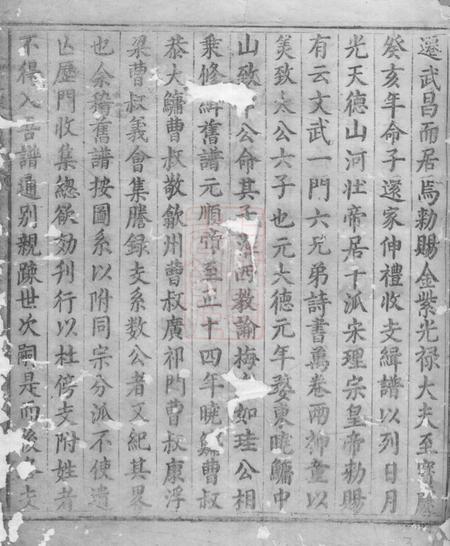 遷武昌而居焉勅賜金紫光禄大夫至寶慶
癸亥年命子遷家伸禮收支緝譜以列日月
光天德山河壯帝居十派宋理宗皇帝勅賜
有云文武一門六兄弟詩書萬卷兩神童以
美致公六子也元大德元年娶東曉鱅中
山致公命其子西教諭梅如珪公相
乘修緝舊譜元順帝至正十四年曉鱅曹叔
恭大鱅曹叔敬歙州曹叔廣祁門曹叔康浮
梁曹叔義會集謄録支系數公者又紀其畧
也余稽舊譜按圖系以附同宗分派不使遺
以歷門收集總欲刻刊行以杜傍支附姓者
不得入吾譜通別親踈世次嗣是而後支